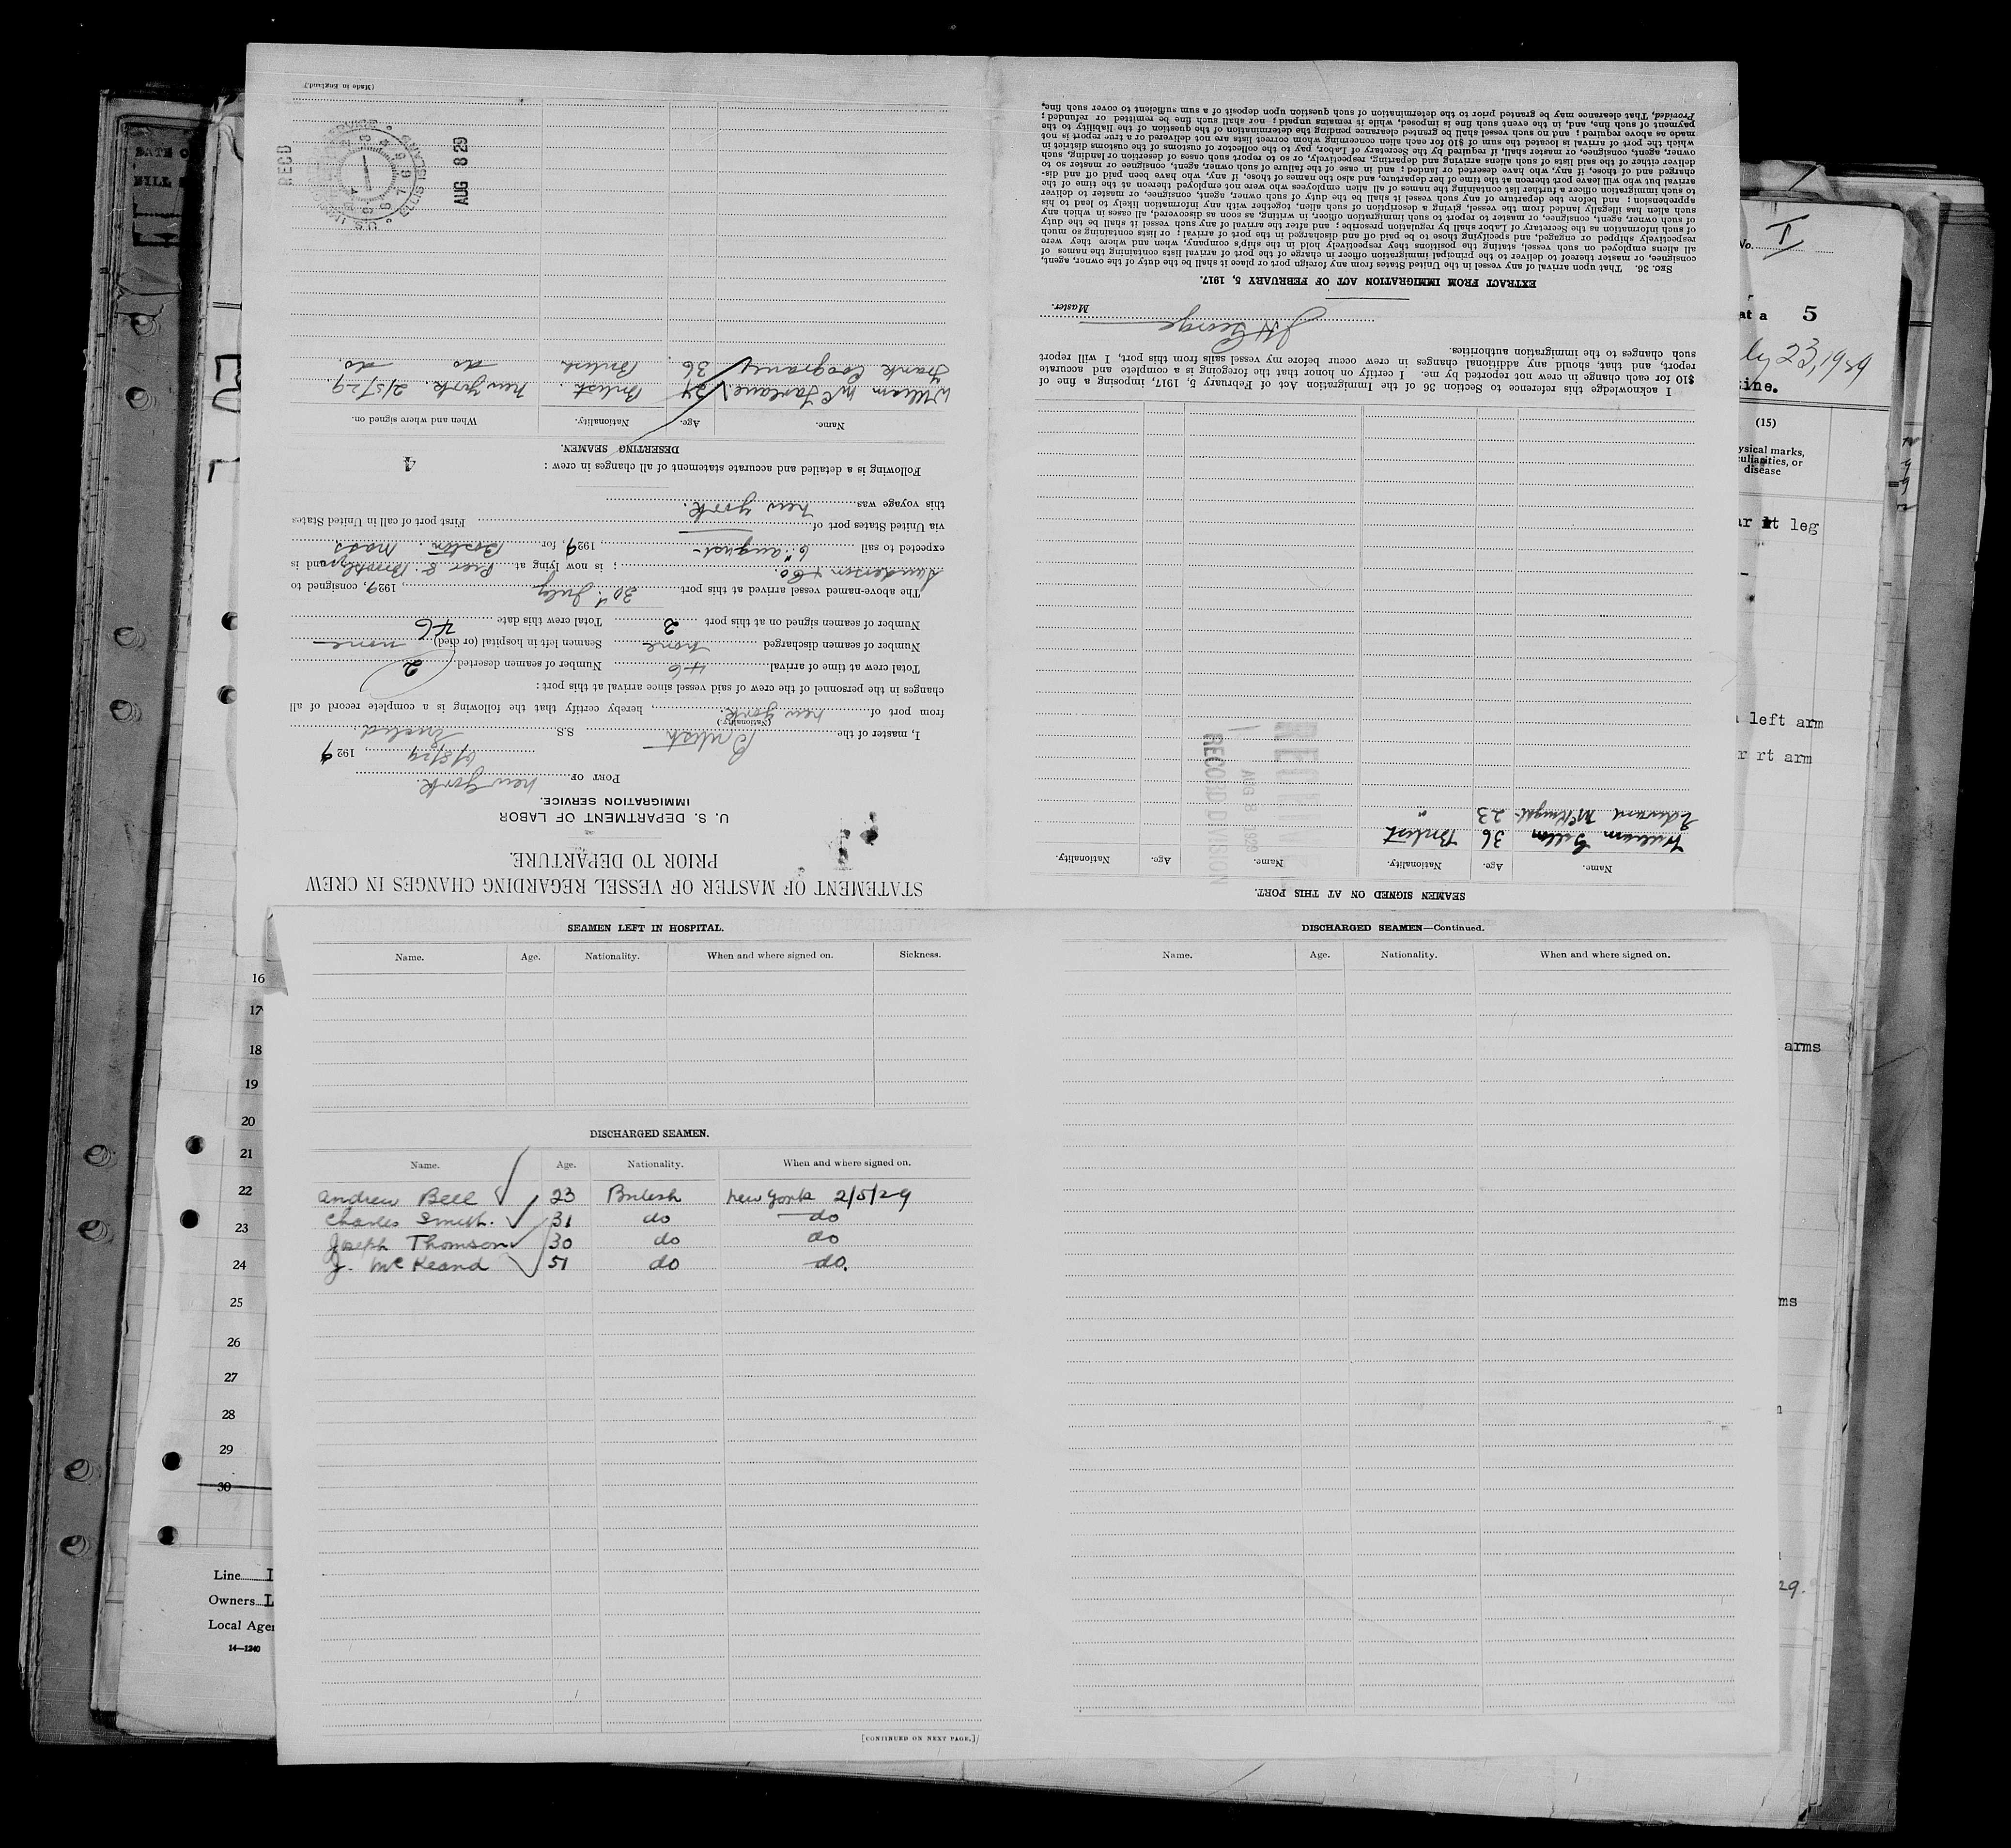 STATEMENT OF MASTER OF VESSEL REGARDING CHANGES IN CREW
PRIOR TO DEPARTURE.
U. S. DEPARTMENT OF LABOR
IMMIGRATION SERVICE.
PORT OF New York.
6/8/29, 1929
I, master of the British S.S.
(Nationality)
from port of New York, hereby certify that the following is a complete record of all
changes in the personnel of the crew of said vessel since arrival at this port:
Total crew at time of arrival 46 Number of seamen deserted 2
Number of seamen discharged none Seamen left in hospital (or died) none
Number of seamen signed on at this port 2 Total crew this date 46
The above-named vessel arrived at this port 30th July, 1929, consigned to
Sanderson & Co.; is now lying at Pier 8 and is
expected to sail 6th August, 1929, for Boston Mass
via United States port of First port of call in United States
this voyage was New York.
Following is a detailed and accurate statement of all changes in crew:
4
DESERTING SEAMEN.
Name. Age. Nationality. When and where signed on.
William McFarlane 24 British. New York. 2/5/29
Frank 36 British do do
RECD
AUG 8 29
ELLIS ISLAND
(Made in England.)
SEAMEN SIGNED ON AT THIS PORT.
Name. Age. Nationality. Name. Age. Nationality.
William 36 British
Edward McKnight 23 "
RECORD DIVISION
AUG 8 1929
I acknowledge this reference to Section 36 of the Immigration Act of February 5, 1917, imposing a fine of
$10 for each change in crew not reported by me. I certify on honor that the foregoing is a complete and accurate
report, and that, should any additional changes in crew occur before my vessel sails from this port, I will report
such changes to the immigration authorities.
George Master.
EXTRACT FROM IMMIGRATION ACT OF FEBRUARY 5, 1917.
SEC. 36. That upon arrival of any vessel in the United States from any foreign port or place it shall be the duty of the owner, agent,
consignee, or master thereof to deliver to the principal immigration officer in charge of the port of arrival lists containing the names of
all aliens employed on such vessel, stating the positions they respectively hold in the ship's company, when and where they were
respectively shipped or engaged, and specifying those to be paid off and discharged in the port of arrival; or lists containing so much
of such information as the Secretary of Labor shall by regulation prescribe; and after the arrival of any such vessel it shall be the duty
of such owner, agent, consignee, or master to report to such immigration officer, in writing, as soon as discovered, all cases in which any
such alien has illegally landed from the vessel, giving a description of such alien, together with any information likely to lead to his
apprehension; and before the departure of any such vessel it shall be the duty of such owner, agent, consignee, or master to deliver
to such immigration officer a further list containing the names of all alien employees who were not employed thereon at the time of the
arrival but who will leave port thereon at the time of her departure, and also the names of those, if any, who have been paid off and dis-
charged and of those, if any, who have deserted or landed; and in case of the failure of such owner, agent, consignee or master to
deliver either of the said lists of such aliens arriving and departing, respectively, or so to report such cases of desertion or landing, such
owner, agent, consignee, or master shall, if required by the Secretary of Labor, pay to the collector of customs of the customs district in
which the port of arrival is located the sum of $10 for each alien concerning whom correct lists are not delivered or a true report is not
made as above required; and no such vessel shall be granted clearance pending the determination of the question of the liability to the
payment of such fine, and, in the event such fine is imposed, while it remains unpaid; nor shall such fine be remitted or refunded;
Provided, That clearance may be granted prior to the determination of such question upon deposit of a sum sufficient to cover such fine.
SEAMEN LEFT IN HOSPITAL.
Name. Age. Nationality. When and where signed on. Sickness.
DISCHARGED SEAMEN.
Name. Age. Nationality. When and where signed on.
Andrew Bell 23 British New York 2/5/29
Charles Smith. 31 do do
Joseph Thomson 30 do do
J. McKeand 51 do do.
[CONTINUED ON NEXT PAGE.]
DISCHARGED SEAMEN—Continued.
Name. Age. Nationality. When and where signed on.
16
17
18
19
20
21
22
23
24
25
26
27
28
29
30
Line
Owners
Local Agen
14—1240
No. I
at a 5
ly 23, 1929
ine.
(15)
ysical marks,
culiarities, or
disease
ar rt leg
left arm
r rt arm
arms
ms
29.